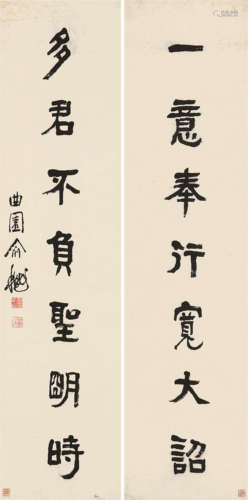 一意奉行寬大詔
多君不負聖明時
曲園俞樾